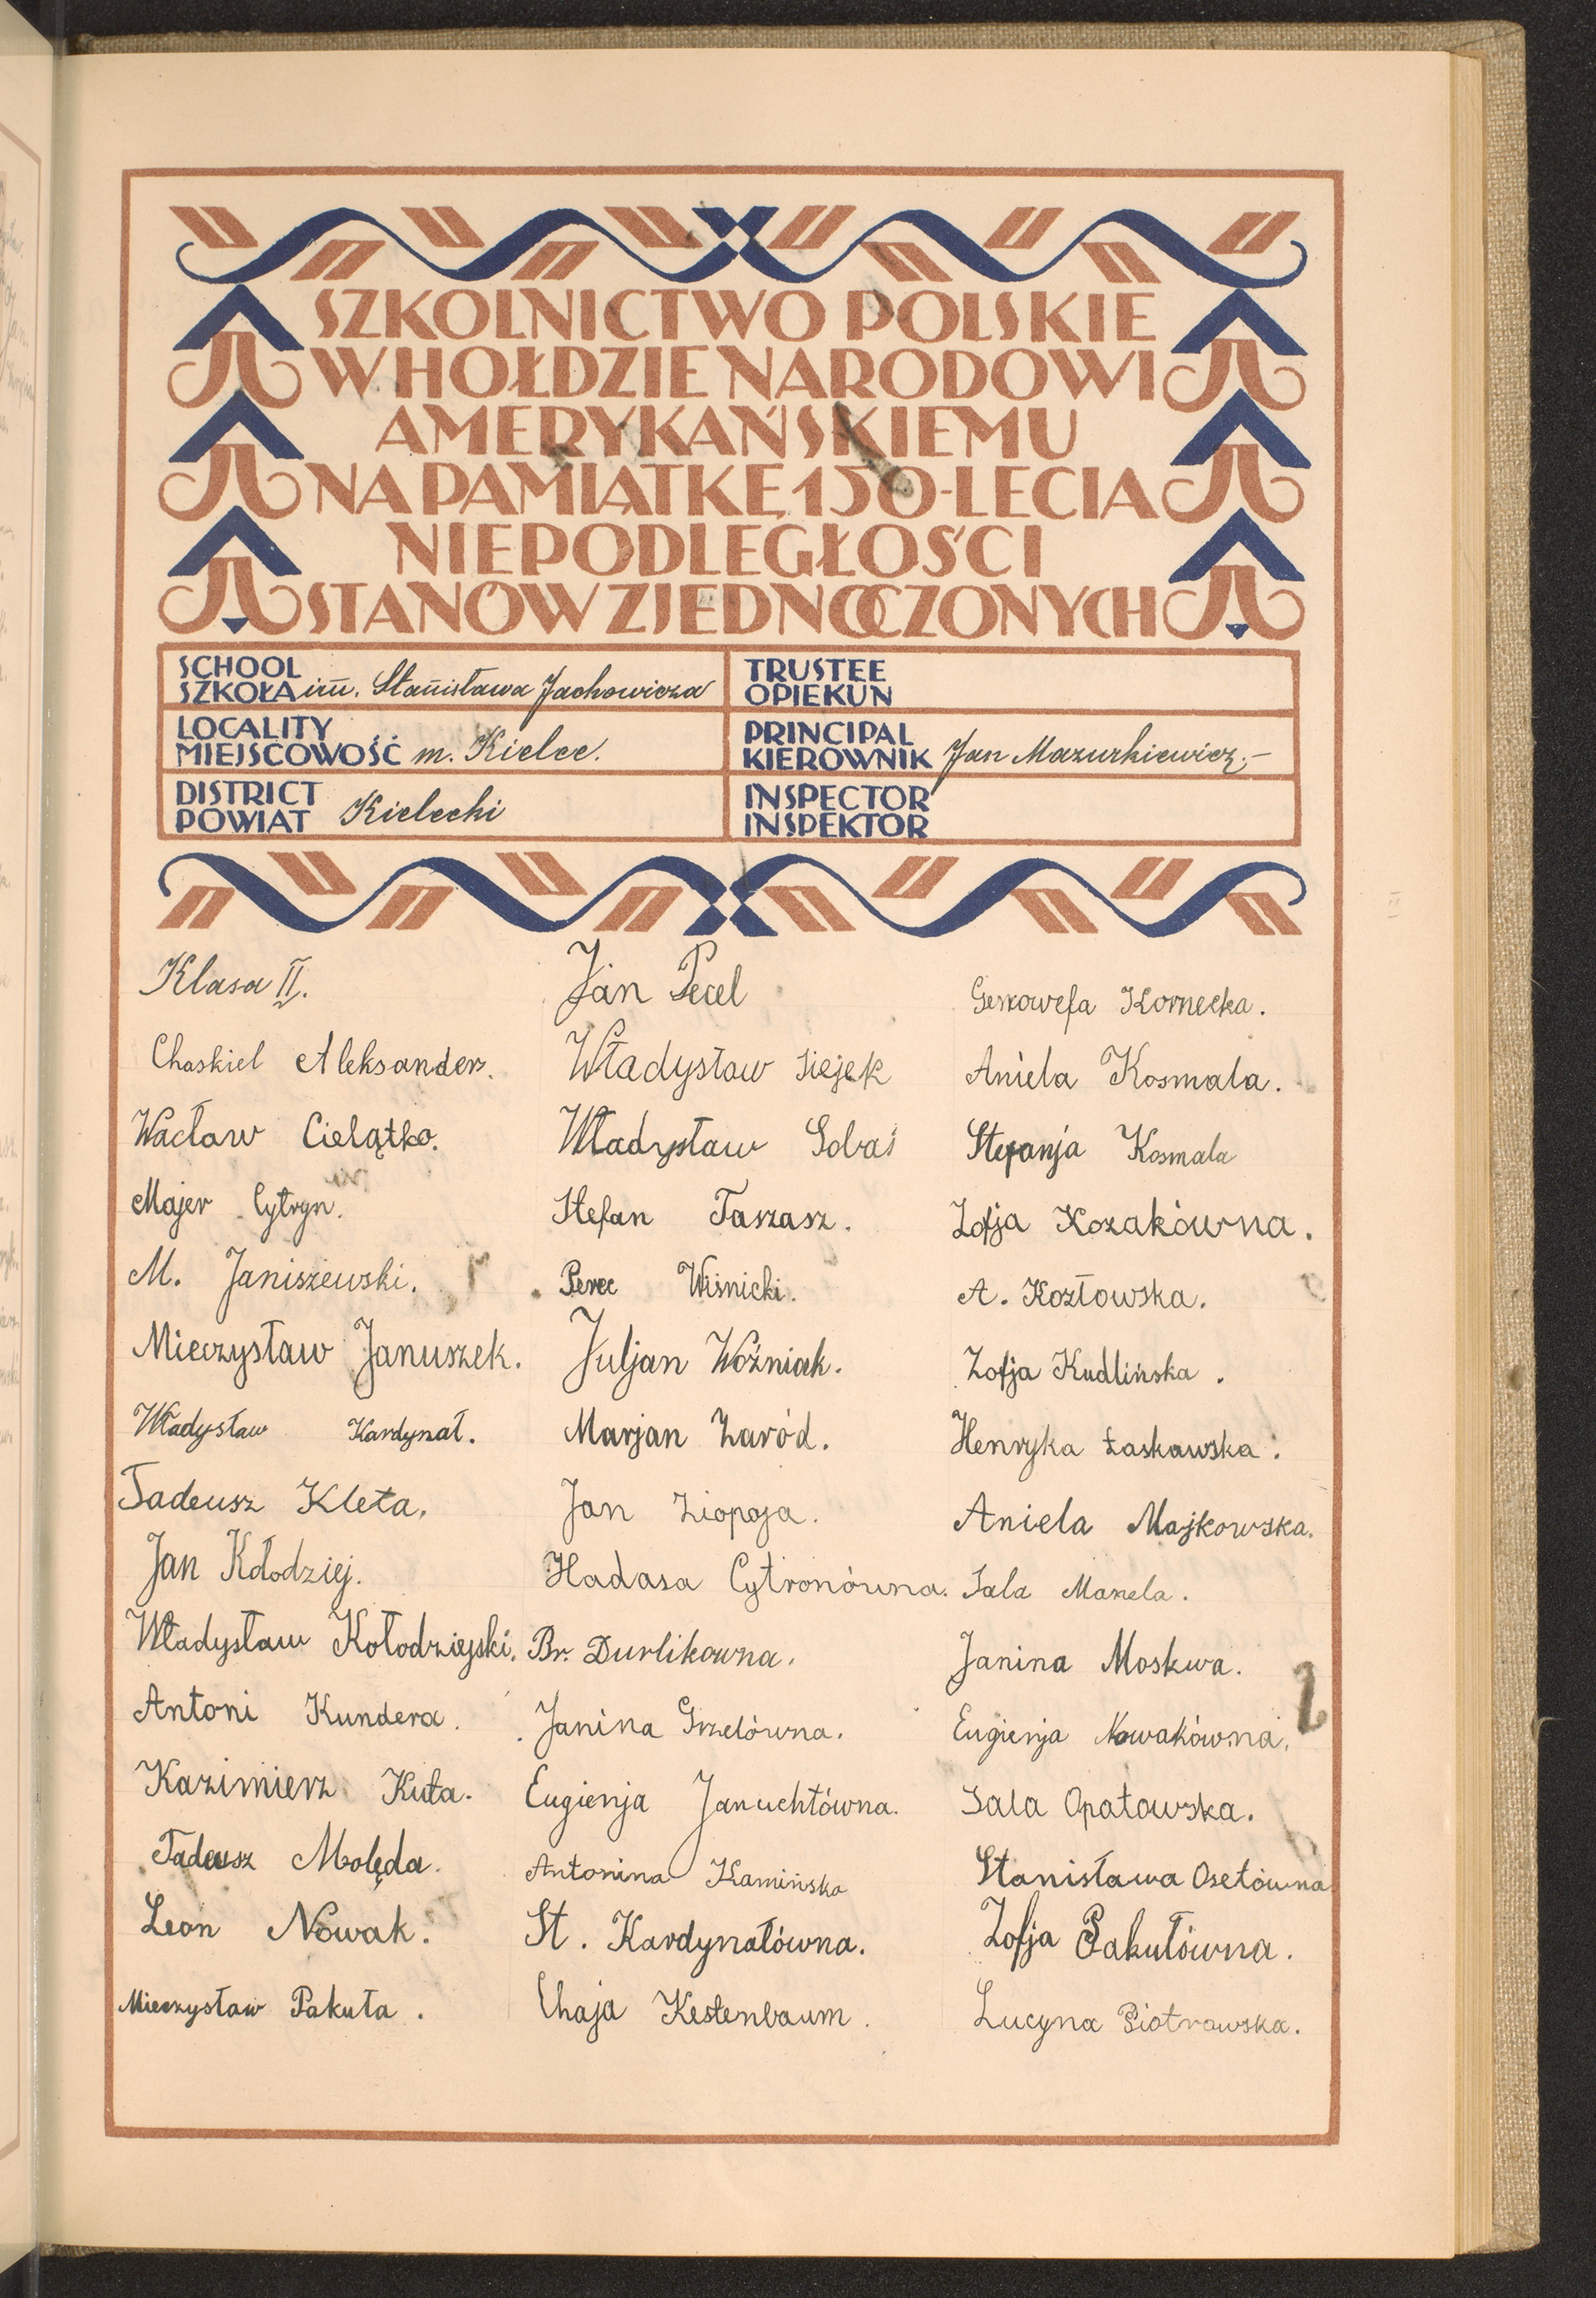 SZKOLNICTWO POLSKIE
W HOŁDZIE NARODOWI
AMERYKAŃSKIEMU
NA PAMIĄTKĘ 150-LECIA
NIEPODLEGŁOŚCI
STANÓW ZJEDNOCZONYCH
SCHOOL
SZKOŁA im. Stanisława Jachowicza
TRUSTEE
OPIEKUN
LOCALITY
MIEJSCOWOŚĆ m. Kielce.
PRINCIPAL
KIEROWNIK Jan Mazurkiewicz.-
DISTRICT
POWIAT Kielecki
INSPECTOR
INSPEKTOR
Klasa II.
Chaskiel Aleksander.
Wacław Cielątko.
Majer Cytryn.
M. Janiszewski.
Mieczysław Januszek.
Władysław Kardynał.
Tadeusz Kleta.
Jan Kołodziej.
Władysław Kołodziejski.
Antoni Kundera.
Kazimierz Kuta.
Tadeusz Molęda.
Leon Nowak.
Mieczysław Pakuła.
Jan Pecel
Władysław Siejek
Władysław Sobaś
Stefan Taszasz.
Perec Wiśnicki.
Juljan Woźniak.
Marjan Zaród.
Jan Ziopaja.
Hadasa Cytronówna.
Br. Durlikowna.
Janina Grzelówna.
Eugienja Januchtówna.
Antonina Kamińska
St. Kardynałówna.
Chaja Kestenbaum.
Genowefa Kornecka.
Aniela Kosmala.
Stefanja Kosmala
Zofja Kozakówna.
A. Kozłowska.
Zofja Kudlińska.
Henryka Łaskawska.
Aniela Majkowska.
Sala Manela.
Janina Moskwa.
Eugienja Nowakówna.
Sala Opatowska.
Stanisława Osetówna
Zofja Pakułówna.
Lucyna Piotrowska.